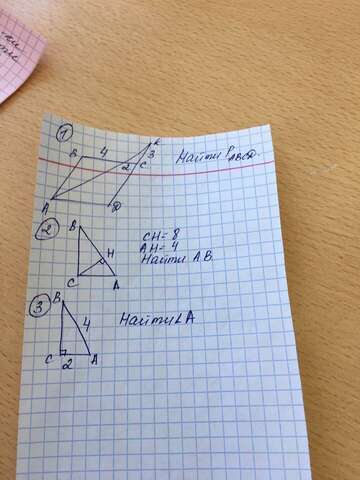 1
K
B 4 3
2 C Найти P ABCD.
A D
2
B CH = 8
AH = 4
H Найти AB.
C A
3
B
4 Найти ∠A
C 2 A